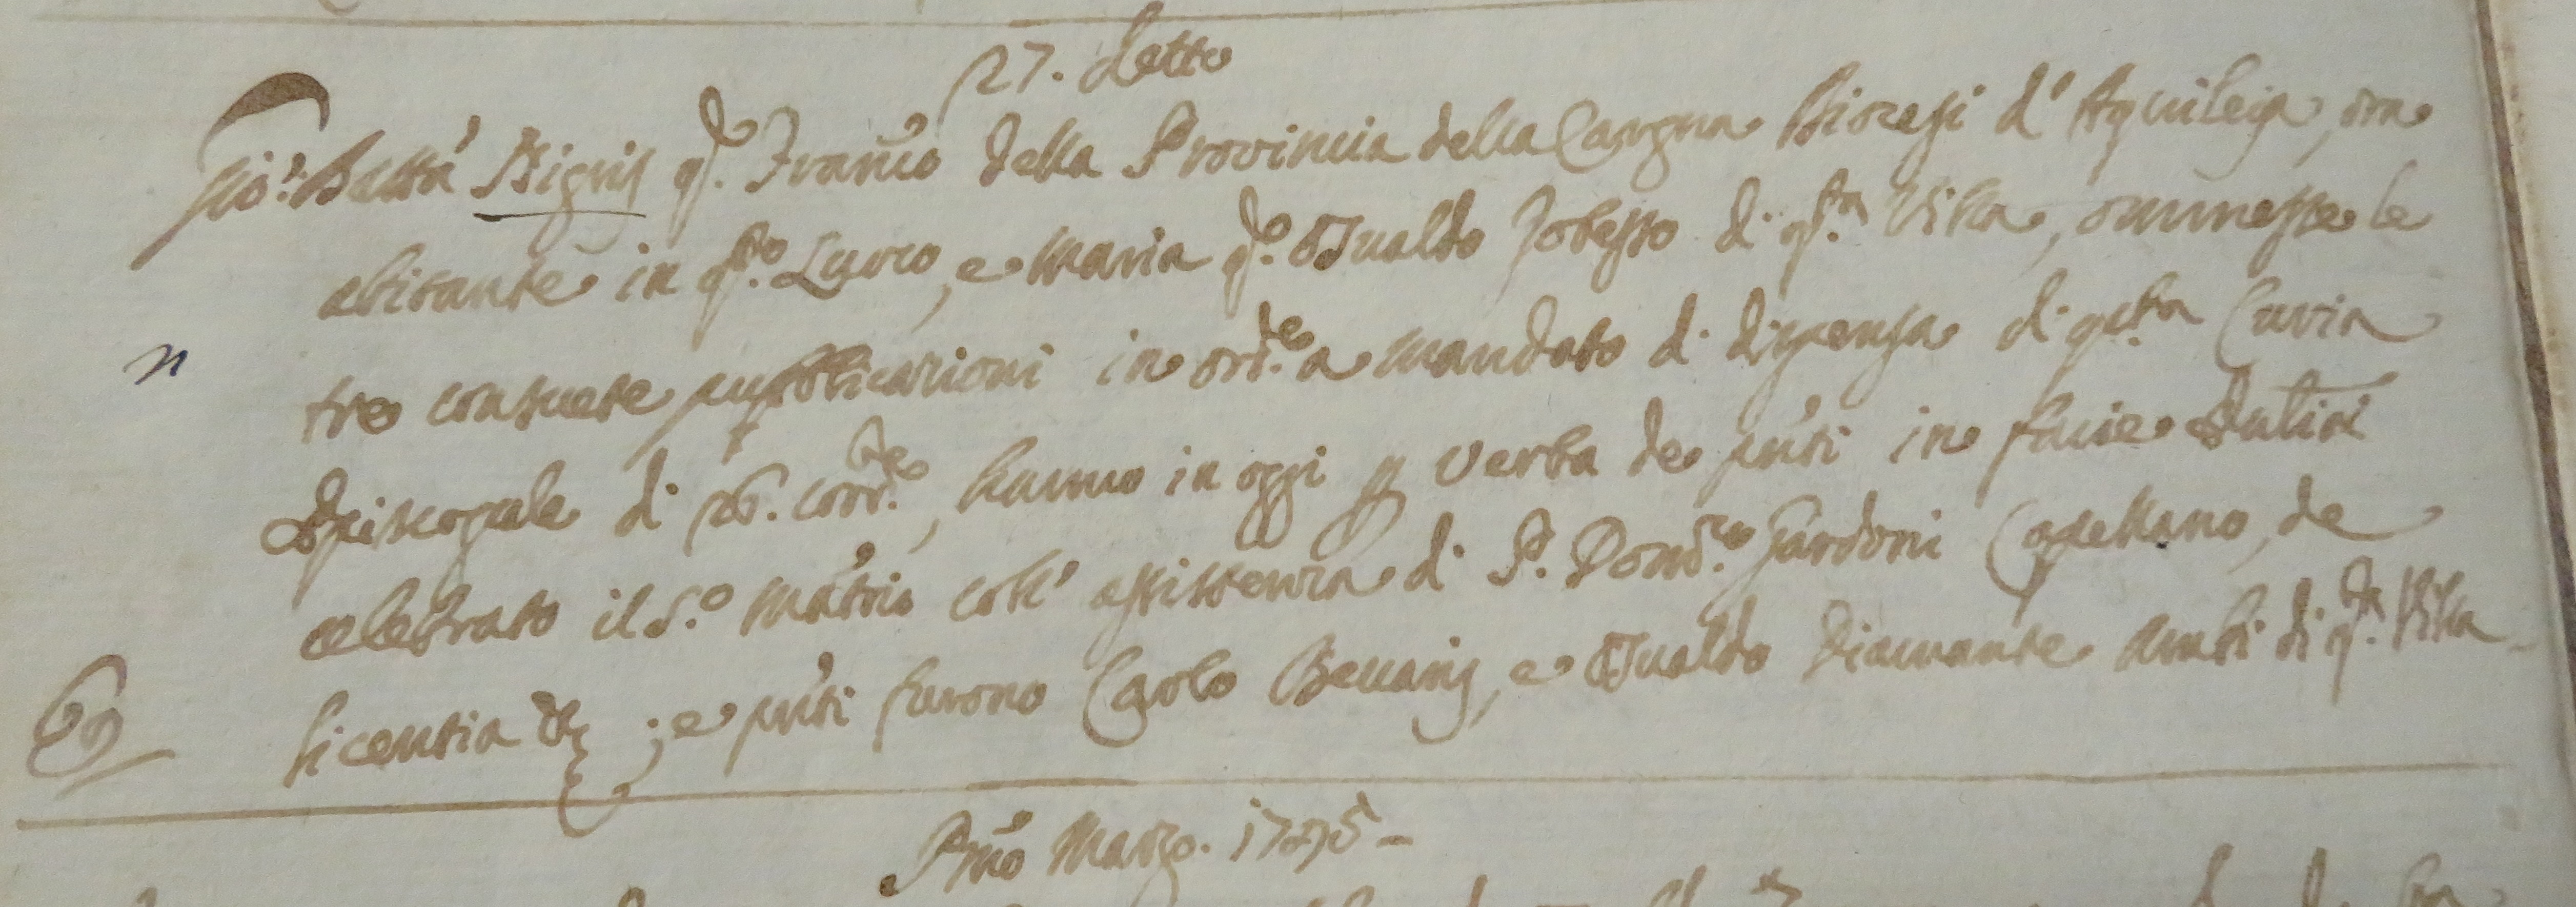 27. detto
Gio: Batta Nigris qd. Franco della Provincia della Cargna Diocesi d'Aquileja, ora
abitante in qsto Luoco, e Maria qdo. Osualdo Jobesso di qsta Villa, ommesse le
tre consuete pubblicazioni in orde. a mandato di dispensa di qsta Curia
Episcopale di 26. corrte, hanno in oggi p verba de pnti in facie Eccles
celebrato il So. Matrio coll' assistenza di P. Domco. Gardoni Capellano, de
69 licentia &c ; e pnti furono Carlo, e Osualdo Diamante ambi di qsta Villa
Pmo Marzo. 1775 -